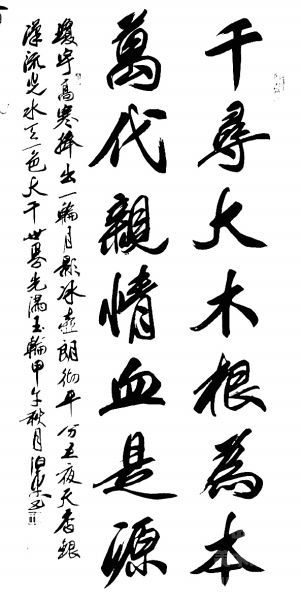 千尋大木根為本
萬代親情血是源
瓊宇高寒捧出一輪月影冰壺朗徹平分五夜天香銀
漢流光水天一色大千世界光滿玉輪甲午秋月